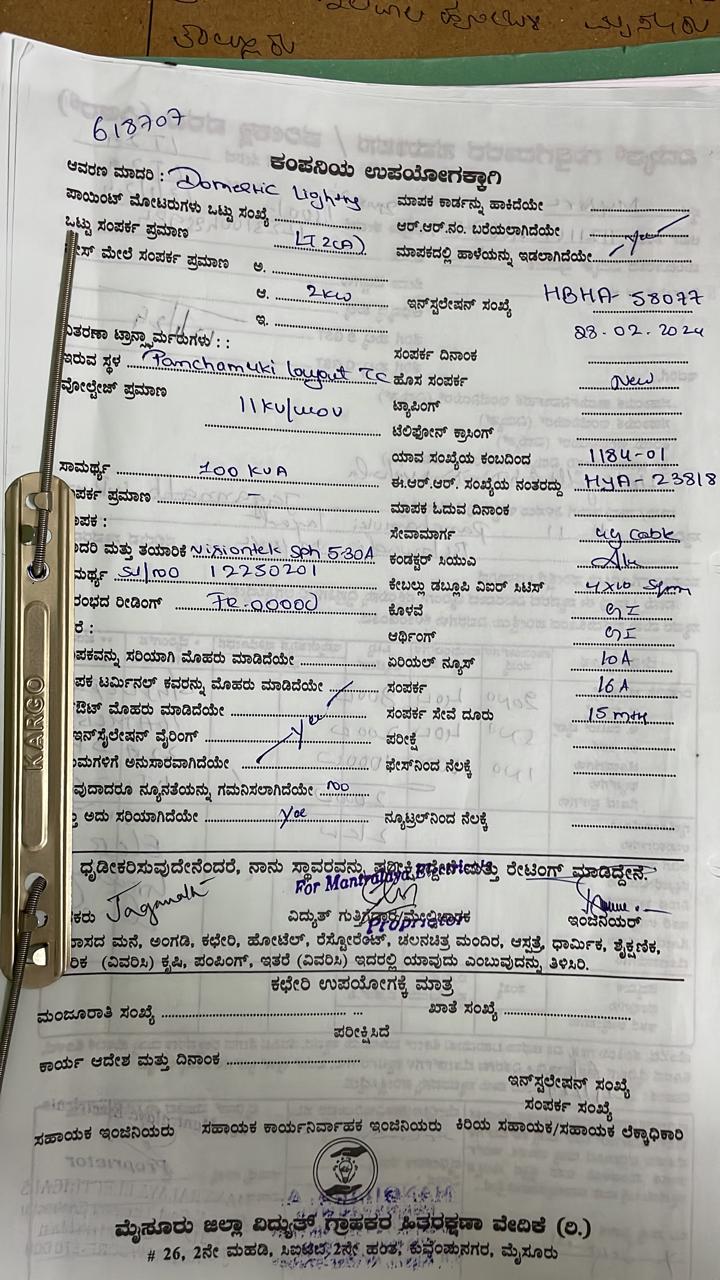 618707
ಕಂಪನಿಯ ಉಪಯೋಗಕ್ಕಾಗಿ
ಆವರಣ ಮಾದರಿ : Domestic Lighting
ಮಾಪಕ ಕಾರ್ಡನ್ನು ಹಾಕಿದೆಯೇ
ಪಾಯಿಂಟ್ ಮೋಟರುಗಳು ಒಟ್ಟು ಸಂಖ್ಯೆ
ಆರ್.ಆರ್.ನಂ. ಬರೆಯಲಾಗಿದೆಯೇ
ಒಟ್ಟು ಸಂಪರ್ಕ ಪ್ರಮಾಣ LT2(A)
ಮಾಪಕದಲ್ಲಿ ಹಾಳೆಯನ್ನು ಇಡಲಾಗಿದೆಯೇ yes
ಮೇಲೆ ಸಂಪರ್ಕ ಪ್ರಮಾಣ ಅ.
ಆ. 2kw
ಇನ್‌ಸ್ಟಲೇಷನ್ ಸಂಖ್ಯೆ HBHA-58077
ಇ.
28.02.2024
ವಿತರಣಾ ಟ್ರಾನ್ಸ್‌ಫಾರ್ಮರುಗಳು : :
ಸಂಪರ್ಕ ದಿನಾಂಕ
ಇರುವ ಸ್ಥಳ Panchamuki layout TC
ಹೊಸ ಸಂಪರ್ಕ New
ವೋಲ್ಟೇಜ್ ಪ್ರಮಾಣ 11KV/
ಟ್ಯಾಪಿಂಗ್
ಟೆಲಿಫೋನ್ ಕ್ರಾಸಿಂಗ್
ಯಾವ ಸಂಖ್ಯೆಯ ಕಂಬದಿಂದ 1184-01
ಸಾಮರ್ಥ್ಯ 100 KVA
ಈ.ಆರ್.ಆರ್. ಸಂಖ್ಯೆಯ ನಂತರದ್ದು HYA-23818
ಪರ್ಕ ಪ್ರಮಾಣ -
ಮಾಪಕ ಓದುವ ದಿನಾಂಕ
ಾಪಕ :
ಸೇವಾಮಾರ್ಗ ug cable
ಾದರಿ ಮತ್ತು ತಯಾರಿಕೆ Visiontek Sph 5-30A
ಕಂಡಕ್ಟರ್ ಸಿಯುವಿ Alu
ಮರ್ಥ್ಯ Sl/no 12250201
ಕೇಬಲ್ಲು ಡಬ್ಲೂಪಿ ವಿಐರ್ ಸಿಟಿಸ್ 4x10 Sqmm
ರಂಭದ ರೀಡಿಂಗ್ FR-00000
ಕೊಳವೆ GI
ರೆ :
ಆರ್ಥಿಂಗ್ GI
ಪಕವನ್ನು ಸರಿಯಾಗಿ ಮೊಹರು ಮಾಡಿದೆಯೇ
ಏರಿಯಲ್ ನ್ಯೂಸ್ 10A
ಪಕ ಟರ್ಮಿನಲ್ ಕವರನ್ನು ಮೊಹರು ಮಾಡಿದೆಯೇ
ಸಂಪರ್ಕ 16A
ಔಟ್ ಮೊಹರು ಮಾಡಿದೆಯೇ
ಸಂಪರ್ಕ ಸೇವೆ ದೂರು 15 mtr
ಇನ್‌ಸ್ಟೆಲೇಷನ್ ವೈರಿಂಗ್ yes
ಪರೀಕ್ಷೆ
ಯಮಗಳಿಗೆ ಅನುಸಾರವಾಗಿದೆಯೇ
ಫೇಸ್‌ನಿಂದ ನೆಲಕ್ಕೆ
ವುದಾದರೂ ನ್ಯೂನತೆಯನ್ನು ಗಮನಿಸಲಾಗಿದೆಯೇ no
ಅದು ಸರಿಯಾಗಿದೆಯೇ yes
ನ್ಯೂಟ್ರಲ್‌ನಿಂದ ನೆಲಕ್ಕೆ
ಧೃಡೀಕರಿಸುವುದೇನೆಂದರೆ, ನಾನು ಸ್ಥಾವರವನ್ನು ಪರೀಕ್ಷಿಸಿದ್ದೇನೆ ಮತ್ತು ರೇಟಿಂಗ್ ಮಾಡಿದ್ದೇನೆ.
For Mantralaya Electricals
Jagannath
ಕರು
ವಿದ್ಯುತ್ ಗುತ್ತಿಗೆದಾರ/ಮೇಲ್ವಿಚಾರಕ
Proprietor
ಇಂಜಿನಿಯರ್
ಾಸದ ಮನೆ, ಅಂಗಡಿ, ಕಛೇರಿ, ಹೋಟೆಲ್, ರೆಸ್ಟೋರೆಂಟ್, ಚಲನಚಿತ್ರ ಮಂದಿರ, ಆಸ್ಪತ್ರೆ, ಧಾರ್ಮಿಕ, ಶೈಕ್ಷಣಿಕ,
ರಿಕ (ವಿವರಿಸಿ) ಕೃಷಿ, ಪಂಪಿಂಗ್, ಇತರೆ (ವಿವರಿಸಿ) ಇದರಲ್ಲಿ ಯಾವುದು ಎಂಬುವುದನ್ನು ತಿಳಿಸಿರಿ.
ಕಛೇರಿ ಉಪಯೋಗಕ್ಕೆ ಮಾತ್ರ
ಮಂಜೂರಾತಿ ಸಂಖ್ಯೆ
ಖಾತೆ ಸಂಖ್ಯೆ
ಪರೀಕ್ಷಿಸಿದೆ
ಕಾರ್ಯ ಆದೇಶ ಮತ್ತು ದಿನಾಂಕ
ಇನ್‌ಸ್ಟಲೇಷನ್ ಸಂಖ್ಯೆ
ಸಂಪರ್ಕ ಸಂಖ್ಯೆ
ಸಹಾಯಕ ಇಂಜಿನಿಯರು ಸಹಾಯಕ ಕಾರ್ಯನಿರ್ವಾಹಕ ಇಂಜಿನಿಯರು ಕಿರಿಯ ಸಹಾಯಕ/ಸಹಾಯಕ ಲೆಕ್ಕಾಧಿಕಾರಿ
ಮೈಸೂರು ಜಿಲ್ಲಾ ವಿದ್ಯುತ್ ಗ್ರಾಹಕರ ಹಿತರಕ್ಷಣಾ ವೇದಿಕೆ (ರಿ.)
# 26, 2ನೇ ಮಹಡಿ, ಸಿಐಟಿಬಿ, 2ನೇ ಹಂತ, ಕುವೆಂಪುನಗರ, ಮೈಸೂರು
KARGO